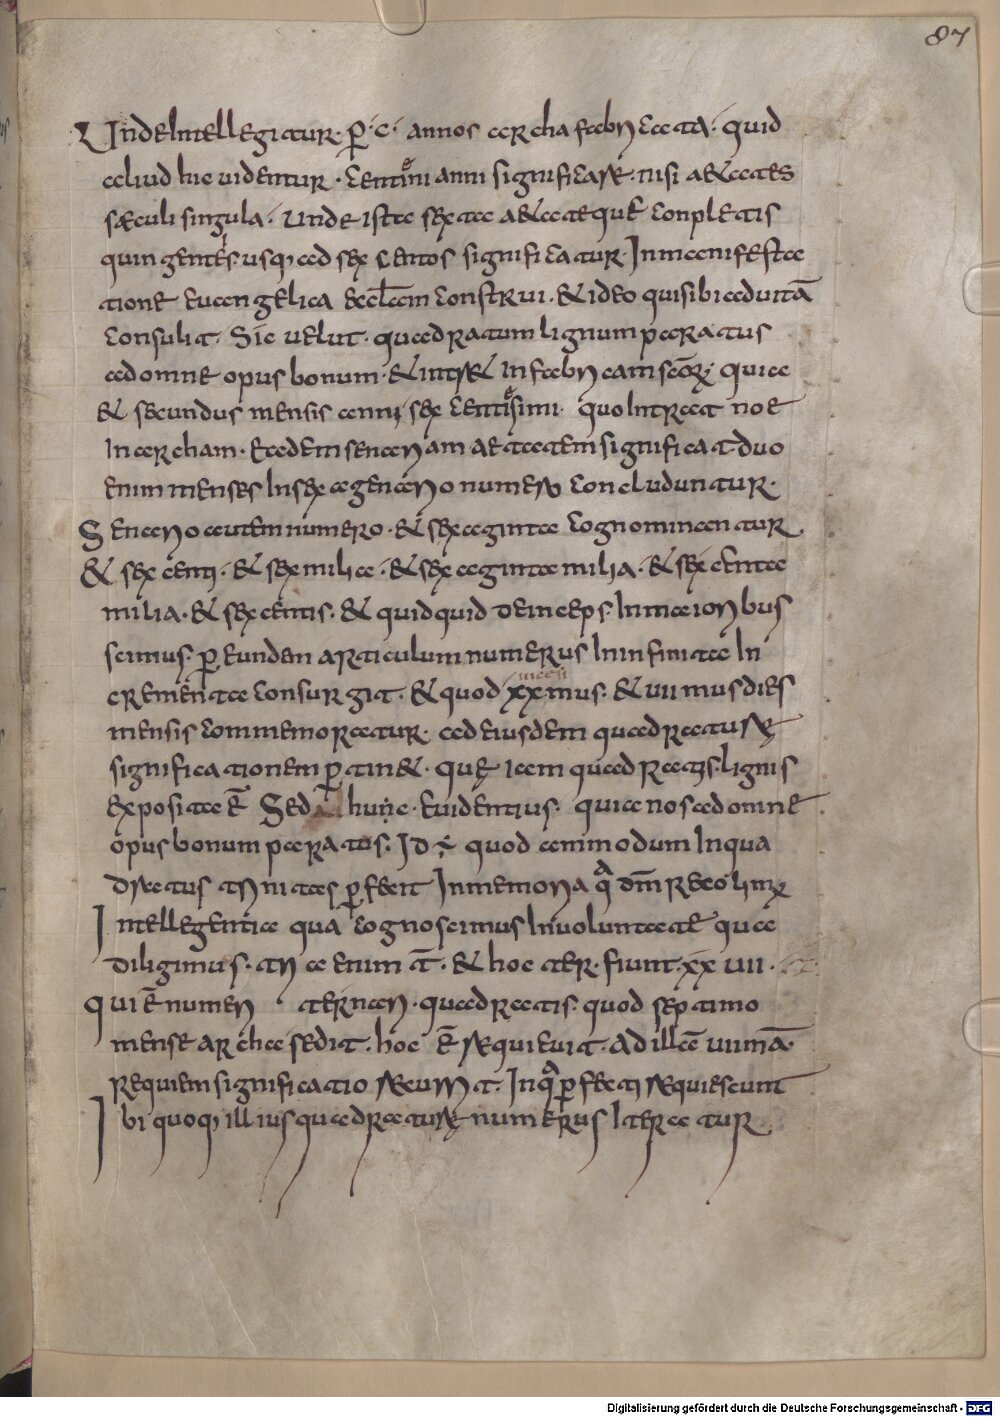 87
Unde intellegitur· p̄·c· annos archa fabricata· quid
aliud hic uidentur· centini anni significare· nisi aetates
saeculi singula· unde ista sexta aetate quę conpletis
quingentis usq; ad sexcentos significatur· In manifesta
tione euangelica eccl̄am construi· & ideo qui sibi ad uitā
consulit· Sic uelut· quadratum lignum paratus
ad omne opus bonum· & intret in fabricam sc̄orum· quia
& secundus mensis anni sexcentesimi· quo intrat noe
in archam· Eadem senariam aetatem significat duo
enim menses in sexagenario numero concluduntur·
Senario autem numero· & sexaginta cognominantur
& sexcenti· & sex milia· & sexaginta milia· & sexcenta
milia· & sexcentis· & quidquid deinceps· in maioribus
scimus· p̄ eunden articulum numerus in infinita in
crementa consurgit· & quod xxmus· & uiimus dies
uicesi
mensis commemoratur· ad eiusdem quadraturę
significationem p̄tin&· quę iam quadratis· lignis
exposita ē Sed hunc· euidentius· quia nos ad omne
opus bonum paratos· Id ÷ quod ammodum inqua
dratus trinitas p̄fecit In memoria qua dm̄ recolimus
Intellegentia qua cognoscimus In uoluntate qua
diligimus· tria enim t̄· & hoc ter· fiunt· xxuiii·
qui ē numeri ternari· quadratis· quod septimo
mense archa sedit· hoc ē requieuit· Ad illā uiimā·
requiem significatio reuertit· In qua p̄fecti requiescunt
Ibi quoq; illius quadraturę numerus iteratur
Digitalisierung gefördert durch die Deutsche Forschungsgemeinschaft - DFG